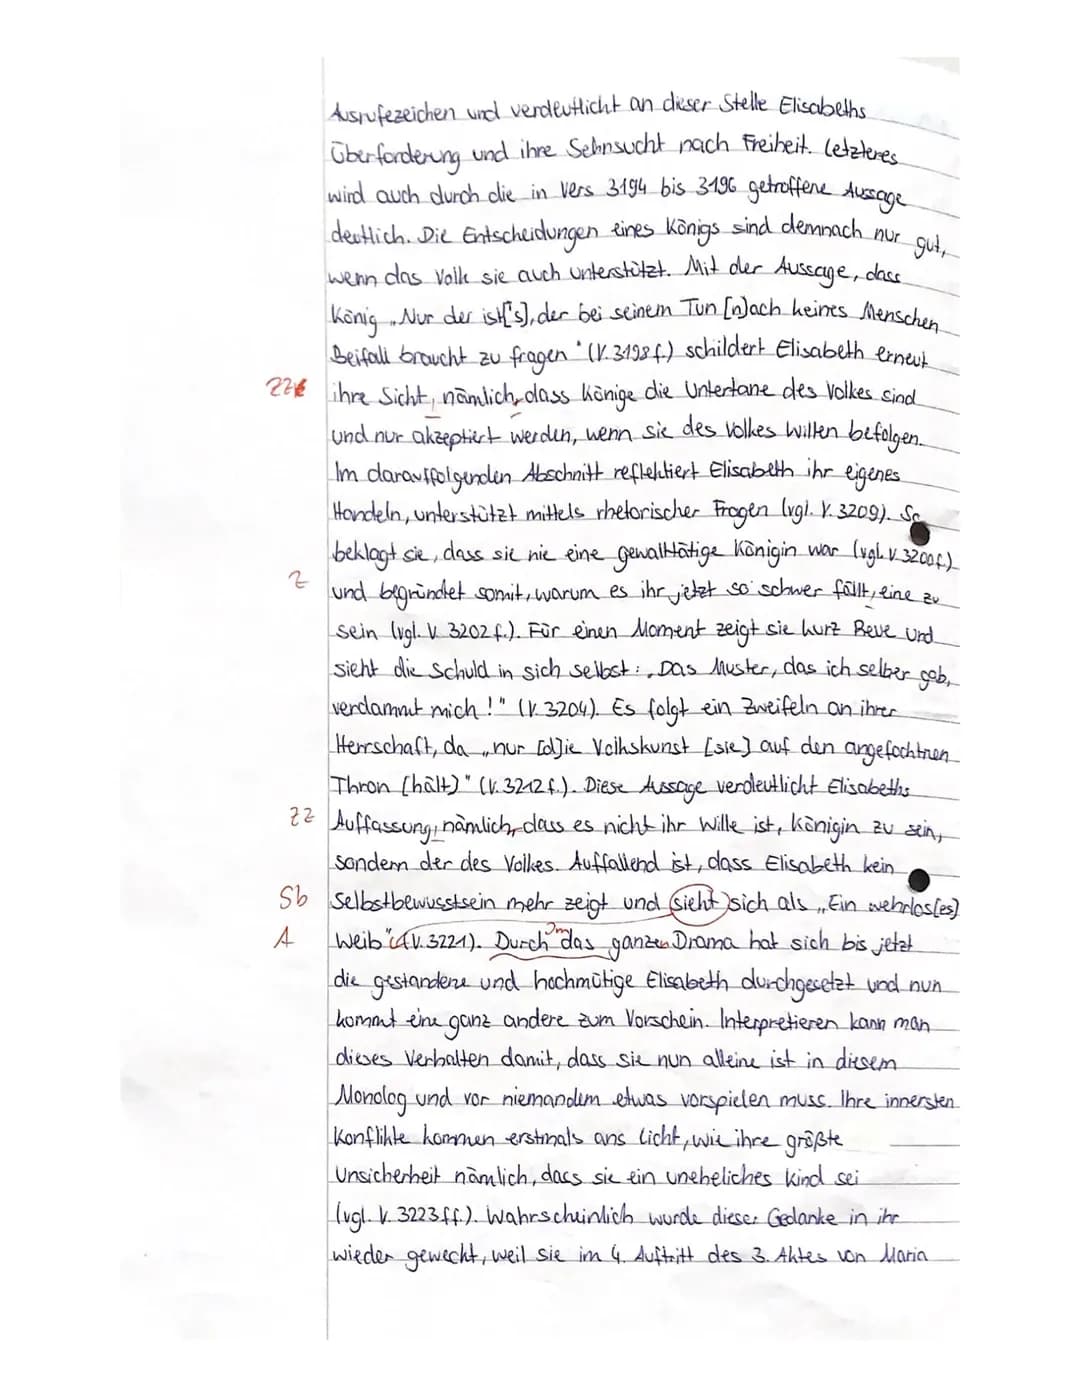 Ausrufezeichen und verdeutlicht an dieser Stelle Elisabeths
Überforderung und ihre Sehnsucht nach Freiheit. Letzteres
wird auch durch die in Vers 3194 bis 3196 getroffene Aussage
deutlich. Die Entscheidungen eines Königs sind demnach nur gut,
wenn das Volk sie auch unterstützt. Mit der Aussage, dass
König „Nur der ist['s], der bei seinem Tun [n]ach keines Menschen
Beifall braucht zu fragen" (V. 3198 f.) schildert Elisabeth erneut
ZZ ihre Sicht, nämlich, dass Könige die Untertane des Volkes sind
und nur akzeptiert werden, wenn sie des Volkes Willen befolgen.
Im darauffolgenden Abschnitt reflektiert Elisabeth ihr eigenes
Handeln, unterstützt mittels rhetorischer Fragen (vgl. V. 3209). So
beklagt sie, dass sie nie eine gewalttätige Königin war (vgl. V. 3200 f.)
Z und begründet somit, warum es ihr jetzt so schwer fällt, eine zu
sein (vgl. V. 3202 f.). Für einen Moment zeigt sie kurz Reue und
sieht die Schuld in sich selbst: „Das Muster, das ich selber gab,
verdammt mich!" (V. 3204). Es folgt ein Zweifeln an ihrer
Herrschaft, da „nur [d]ie Volkskunst [sie] auf den angefochtnen
Thron [hält]" (V. 3212 f.). Diese Aussage verdeutlicht Elisabeths
ZZ Auffassung, nämlich, dass es nicht ihr Wille ist, Königin zu sein,
sondern der des Volkes. Auffallend ist, dass Elisabeth kein
Sb Selbstbewusstsein mehr zeigt und sieht sich als „Ein wehrlos[es]
A Weib" (V. 3221). Durch Im das ganzen Drama hat sich bis jetzt
die gestandene und hochmütige Elisabeth durchgesetzt und nun
kommt eine ganz andere zum Vorschein. Interpretieren kann man
dieses Verhalten damit, dass sie nun alleine ist in diesem
Monolog und vor niemandem etwas vorspielen muss. Ihre innersten
Konflikte kommen erstmals ans Licht, wie ihre größte
Unsicherheit nämlich, dass sie ein uneheliches Kind sei
(vgl. V. 3223 ff.). Wahrscheinlich wurde dieser Gedanke in ihr
wieder geweckt, weil sie im 4. Auftritt des 3. Aktes von Maria